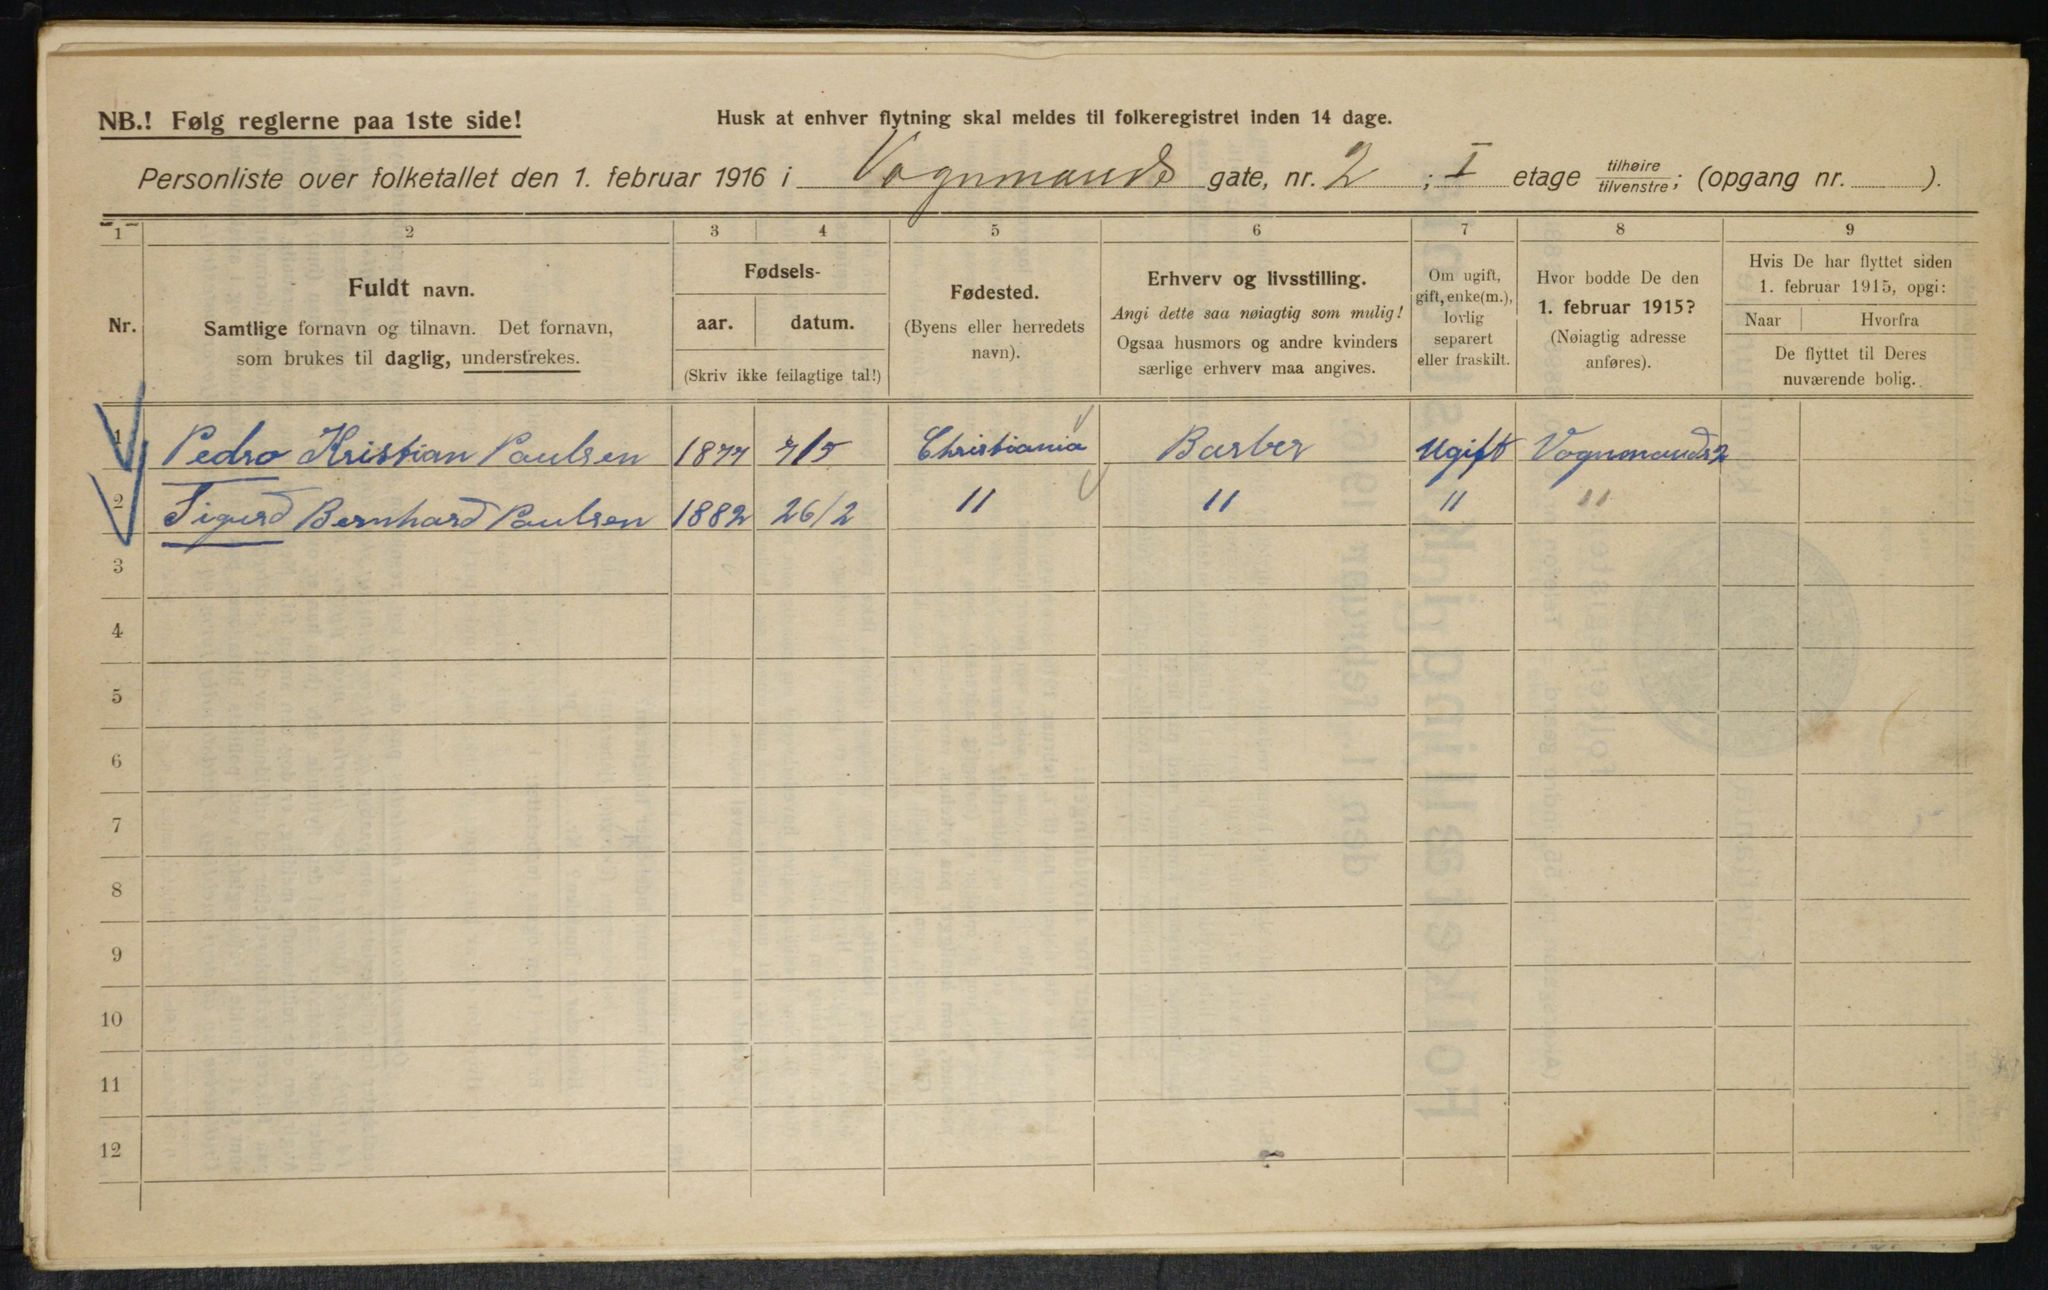 NB.! Følg reglerne paa 1ste side!
Husk at enhver flytning skal meldes til folkeregistret inden 14 dage.
Personliste over folketallet den 1. februar 1916 i Vognmands gate, nr. 2 ; I etage tilhøire / tilvenstre ; (opgang nr. ).
1 2 3 4 5 6 7 8 9
Nr.
Fuldt navn.
Samtlige fornavn og tilnavn. Det fornavn,
som brukes til daglig, understrekes.
Fødsels-
aar. datum.
(Skriv ikke feilagtige tal!)
Fødested.
(Byens eller herredets
navn).
Erhverv og livsstilling.
Angi dette saa nøiagtig som mulig!
Ogsaa husmors og andre kvinders
særlige erhverv maa angives.
Om ugift,
gift, enke(m.),
lovlig
separert
eller fraskilt.
Hvor bodde De den
1. februar 1915?
(Nøiagtig adresse
anføres).
Hvis De har flyttet siden
1. februar 1915, opgi:
Naar Hvorfra
De flyttet til Deres
nuværende bolig.
1 Pedro Kristian Paulsen 1877 7/5 Christiania Barber Ugift Vognmands 2
2 Sigurd Bernhard Paulsen 1882 26/2 " " " "
3
4
5
6
7
8
9
10
11
12